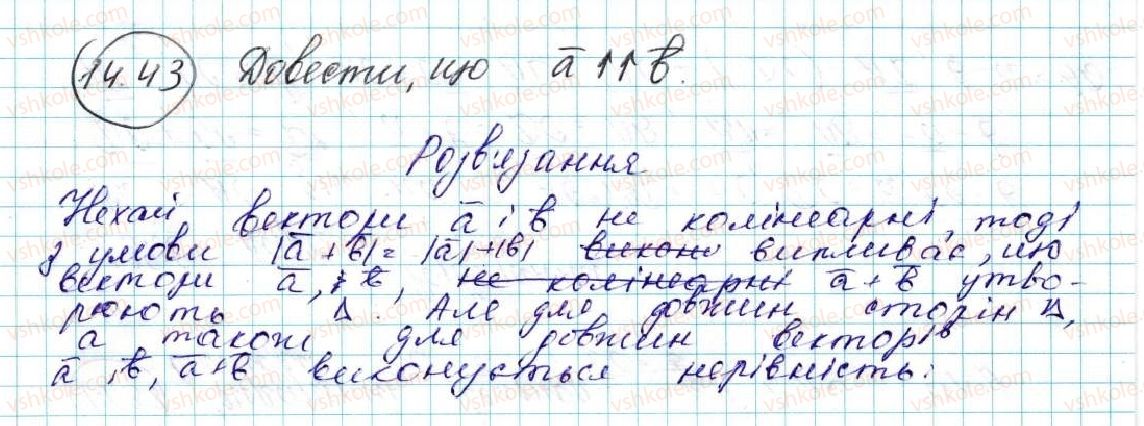 14.43 Довести, що a̅ ↑↑ b̅.
Розв'язання
Нехай вектори a̅ і b̅ не колінеарні, тоді
з умови |a̅ + b̅| = |a̅| + |b̅| виконо випливає, що
вектори a̅, b̅, не колінеарні a̅ + b̅ утво-
рюють Δ. Але для довжин сторін Δ,
а також для довжин векторів
a̅, b̅, a̅+b̅ виконується нерівність: